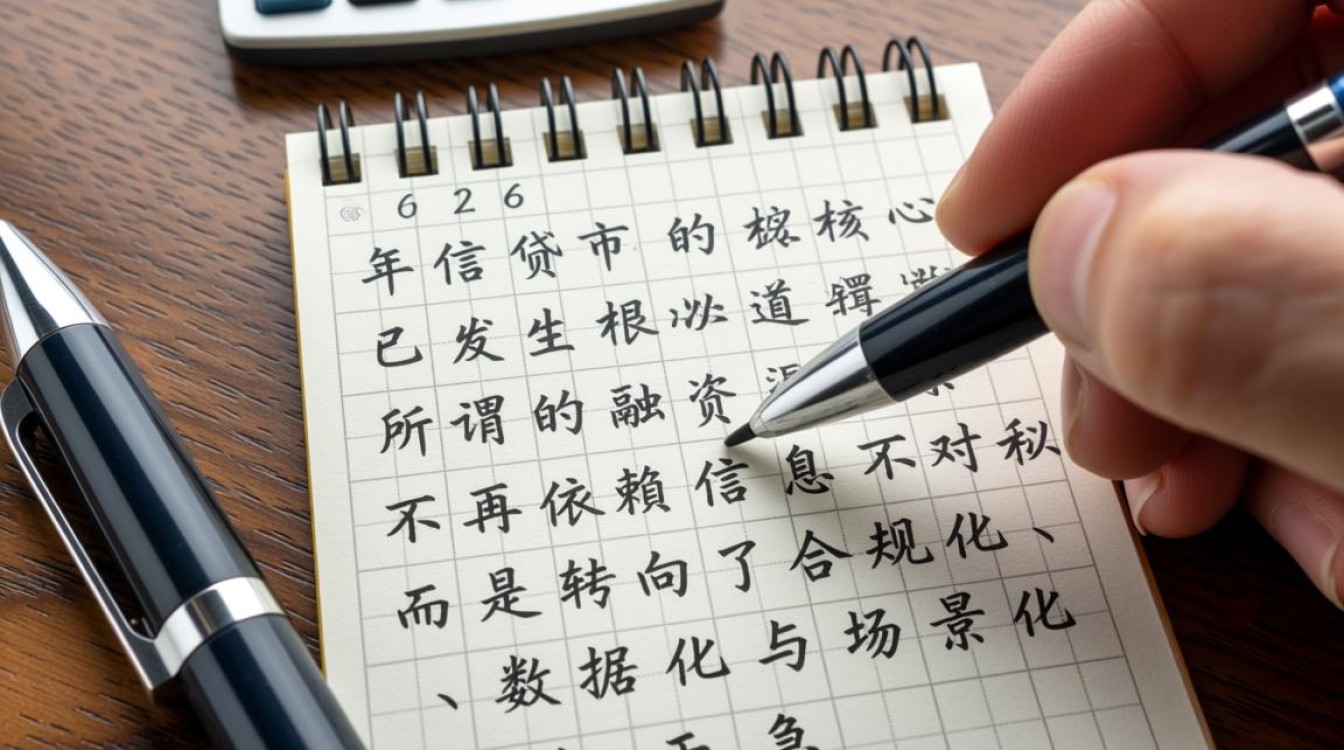 626
年信贷市的核心
已发生根必道
所谓的融资
不再依賴信息不对秘
而是转向了合规化、
、数据化与场景化